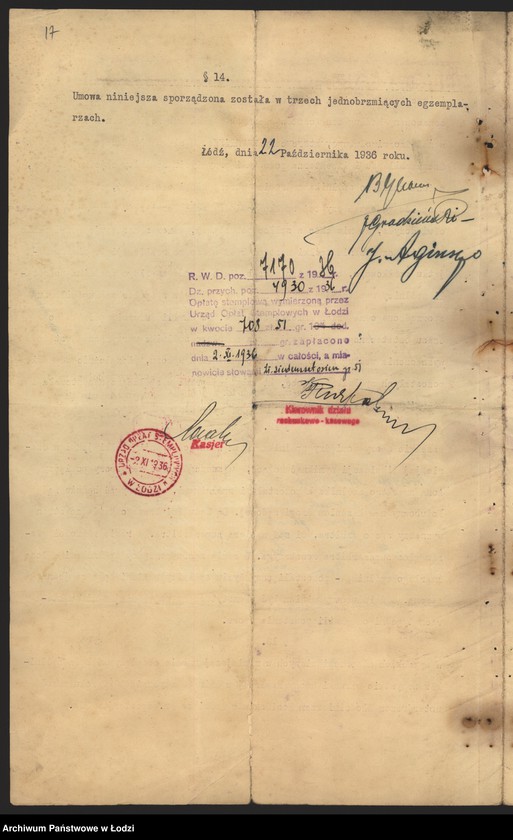 17
§ 14.
Umowa niniejsza sporządzona została w trzech jednobrzmiących egzempla-
rzach.
Łódź, dnia 22 Października 1936 roku.
R. W. D. poz. 7170 z 19 36 r.
Dz. przych. poz. 4930 z 19 36 r.
Opłatę stemplową wymierzoną przez
Urząd Opłat Stemplowych w Łodzi
w kwocie 708 zł. 51 gr. 10% dod.
zapłacono
dnia 2.XI.1936 w całości, a mia-
nowicie słownie zł. siedemset osiem gr 51
Kierownik działu
rachunkowo-kasowego
Kasjer
URZĄD OPŁAT STEMPLOWYCH
-2 XI 1936
W ŁODZI
Archiwum Państwowe w Łodzi